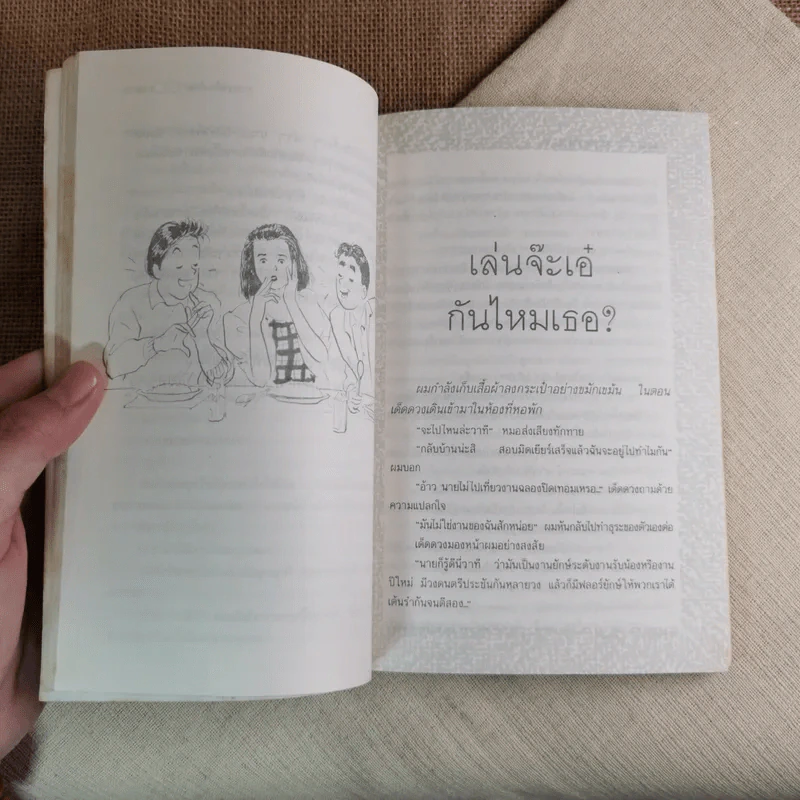 เล่นจ๊ะเอ๋
กันไหมเธอ?
ผมกำลังเก็บเสื้อผ้าลงกระเป๋าอย่างขมักเขม้น ในตอน
เด็ดดวงเดินเข้ามาในห้องที่หอพัก
"จะไปไหนล่ะวาที" หมอส่งเสียงทักทาย
"กลับบ้านน่ะสิ สอบมิดเยียร์เสร็จแล้วฉันจะอยู่ไปทำไมกัน"
ผมบอก
"อ้าว นายไม่ไปเที่ยวงานฉลองปิดเทอมเหรอ.." เด็ดดวงถามด้วย
ความแปลกใจ
"มันไม่ใช่งานของฉันสักหน่อย" ผมหันกลับไปทำธุระของตัวเองต่อ
เด็ดดวงมองหน้าผมอย่างสงสัย
"นายก็รู้ดีนี่วาที ว่ามันเป็นงานยักษ์ระดับงานรับน้องหรืองาน
ปีใหม่ มีวงดนตรีประชันกันหลายวง แล้วก็มีฟลอร์ยักษ์ให้พวกเราได้
เต้นรำกันจนตีสอง.."